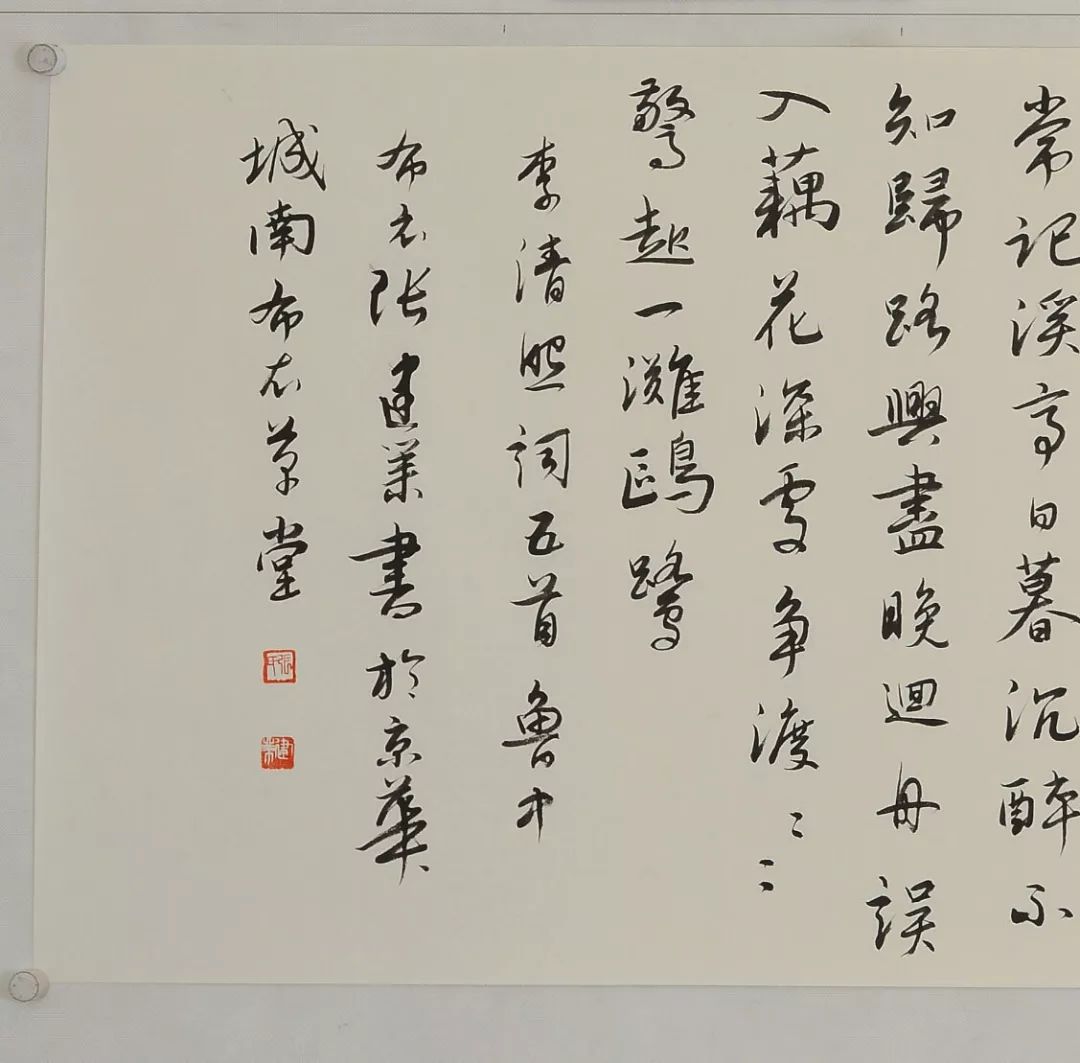 常記溪亭日暮沉醉不
知歸路興盡晚迴舟誤
入藕花深處争渡〻〻
驚起一灘鷗鷺
李清照詞五首魯中
布衣张建業書於京華
城南布衣草堂